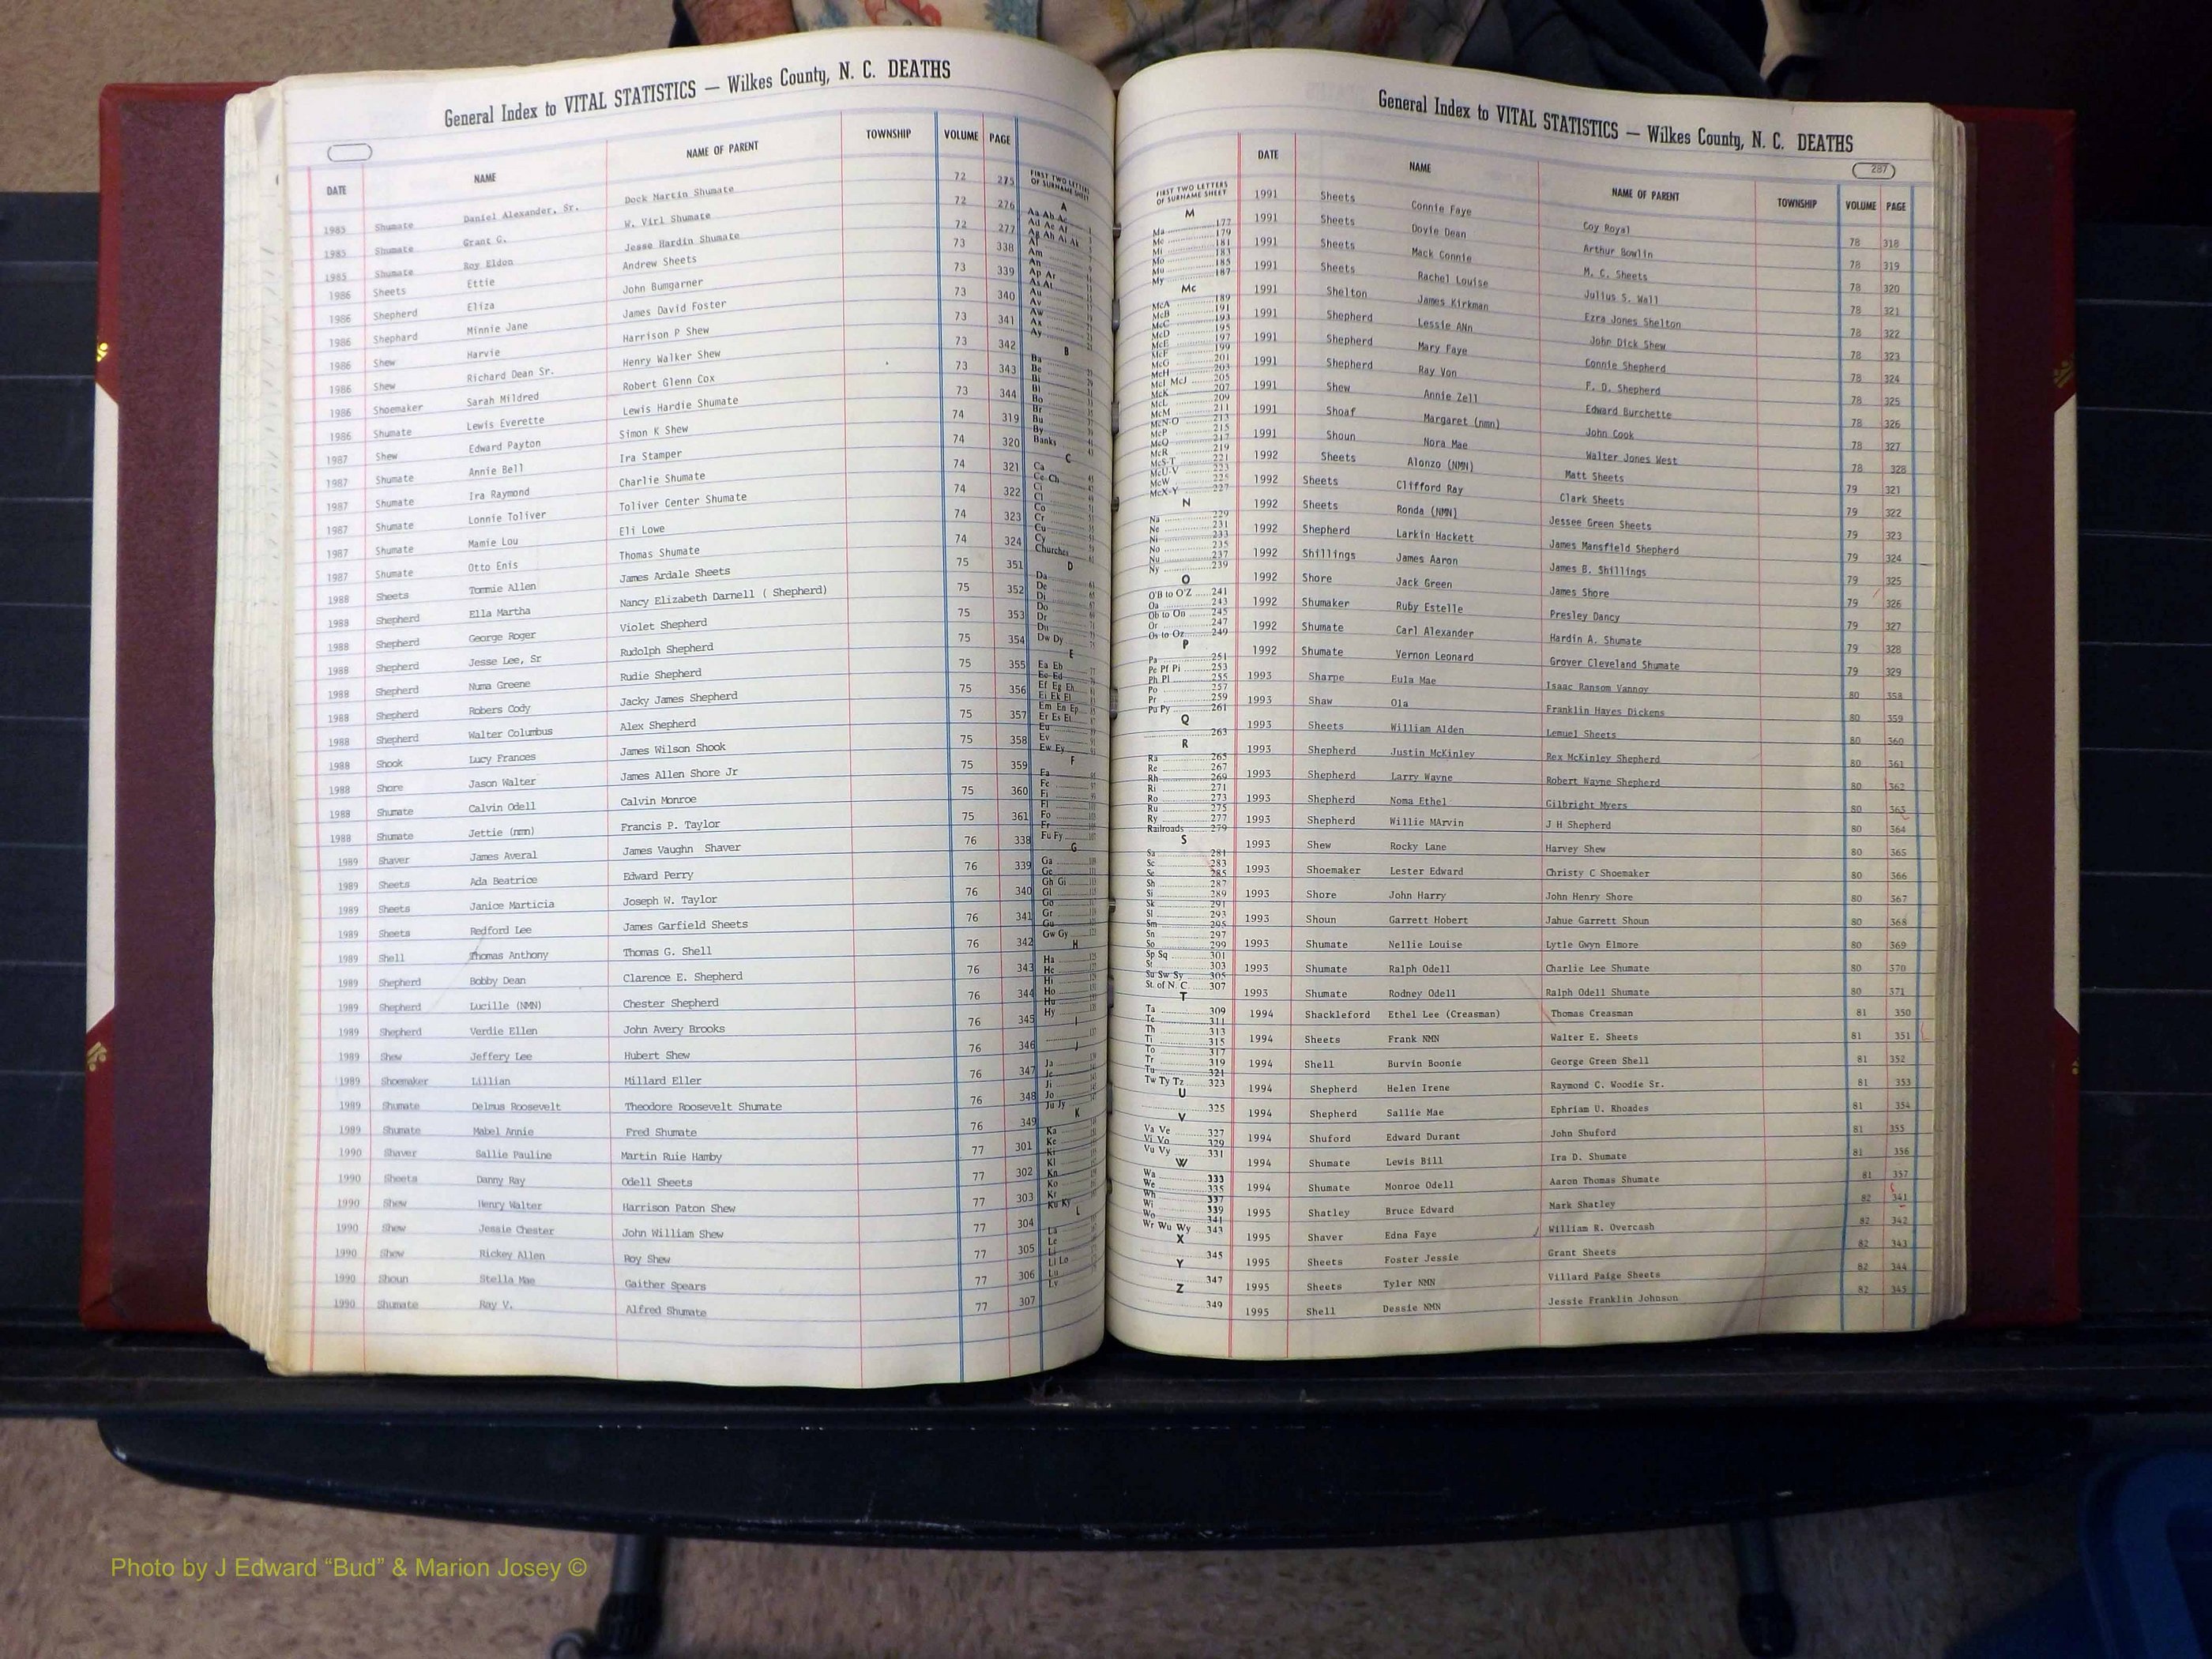 General Index to VITAL STATISTICS — Wilkes County, N. C. DEATHS
DATE NAME NAME OF PARENT TOWNSHIP VOLUME PAGE
1985 Shumate Daniel Alexander, Sr. Dock Martin Shumate 72 275
1985 Shumate Grant G. W. Virl Shumate 72 276
1985 Shumate Roy Eldon Jesse Hardin Shumate 72 277
1986 Sheets Ettie Andrew Sheets 73 338
1986 Shepherd Eliza John Bumgarner 73 339
1986 Shephard Minnie Jane James David Foster 73 340
1986 Shew Harvie Harrison P Shew 73 341
1986 Shew Richard Dean Sr. Henry Walker Shew 73 342
1986 Shoemaker Sarah Mildred Robert Glenn Cox 73 343
1986 Shumate Lewis Everette Lewis Hardie Shumate 73 344
1987 Shew Edward Payton Simon K Shew 74 319
1987 Shumate Annie Bell Ira Stamper 74 320
1987 Shumate Ira Raymond Charlie Shumate 74 321
1987 Shumate Lonnie Toliver Toliver Center Shumate 74 322
1987 Shumate Mamie Lou Eli Lowe 74 323
1987 Shumate Otto Enis Thomas Shumate 74 324
1988 Sheets Tommie Allen James Ardale Sheets 75 351
1988 Shepherd Ella Martha Nancy Elizabeth Darnell ( Shepherd) 75 352
1988 Shepherd George Roger Violet Shepherd 75 353
1988 Shepherd Jesse Lee, Sr Rudolph Shepherd 75 354
1988 Shepherd Numa Greene Rudie Shepherd 75 355
1988 Shepherd Robers Cody Jacky James Shepherd 75 356
1988 Shepherd Walter Columbus Alex Shepherd 75 357
1988 Shook Lucy Frances James Wilson Shook 75 358
1988 Shore Jason Walter James Allen Shore Jr 75 359
1988 Shumate Calvin Odell Calvin Monroe 75 360
1988 Shumate Jettie (nmn) Francis P. Taylor 75 361
1989 Shaver James Averal James Vaughn Shaver 76 338
1989 Sheets Ada Beatrice Edward Perry 76 339
1989 Sheets Janice Marticia Joseph W. Taylor 76 340
1989 Sheets Redford Lee James Garfield Sheets 76 341
1989 Shell Thomas Anthony Thomas G. Shell 76 342
1989 Shepherd Bobby Dean Clarence E. Shepherd 76 343
1989 Shepherd Lucille (NMN) Chester Shepherd 76 344
1989 Shepherd Verdie Ellen John Avery Brooks 76 345
1989 Shew Jeffery Lee Hubert Shew 76 346
1989 Shoemaker Lillian Millard Eller 76 347
1989 Shumate Delmus Roosevelt Theodore Roosevelt Shumate 76 348
1989 Shumate Mabel Annie Fred Shumate 76 349
1990 Shaver Sallie Pauline Martin Ruie Hamby 77 301
1990 Sheets Danny Ray Odell Sheets 77 302
1990 Shew Henry Walter Harrison Paton Shew 77 303
1990 Shew Jessie Chester John William Shew 77 304
1990 Shew Rickey Allen Roy Shew 77 305
1990 Shoun Stella Mae Gaither Spears 77 306
1990 Shumate Ray V. Alfred Shumate 77 307
FIRST TWO LETTERS
OF SURNAME SHEET
A
Aa Ab Ac
Ad Ae Af
Ag Ah Ai Ak
Al
Am
An
Ap Ar
As At
Au
Av
Aw
Ax
Ay
B
Ba
Be
Bi
Bl
Bo
Br
Bu
By
Banks
C
Ca
Ce Ch
Ci
Cl
Co
Cr
Cu
Cy
Churches
D
Da
De
Di
Do
Dr
Du
Dw Dy
E
Ea Eb
Ec Ed
Ef Eg Eh
Ei Ek El
Em En Ep
Er Es Et
Eu
Ev
Ew Ey
F
Fa
Fe
Fi
Fl
Fo
Fr
Fu Fy
G
Ga
Ge
Gh Gi
Gl
Go
Gr
Gu
Gw Gy
H
Ha
He
Hi
Ho
Hu
Hy
I
J
Ja
Je
Ji
Jo
Ju Jy
K
Ka
Ke
Ki
Kl
Kn
Ko
Kr
Ku Ky
L
La
Le
Li
Ll Lo
Lu
Ly
General Index to VITAL STATISTICS — Wilkes County, N. C. DEATHS
287
FIRST TWO LETTERS
OF SURNAME SHEET
M
Ma 177
Me 179
Mi 181
Mo 183
Mu 185
My 187
Mc
McA 189
McB 191
McC 193
McD 195
McE 197
McF 199
McG 201
McH 203
McI McJ 205
McK 207
McL 209
McM 211
McN-O 213
McP 215
McQ 217
McR 219
McS-T 221
McU-V 223
McW 225
McX-Y 227
N
Na 229
Ne 231
Ni 233
No 235
Nu 237
Ny 239
O
O'B to O'Z 241
Oa 243
Ob to On 245
Or 247
Os to Oz 249
P
Pa 251
Pe Pf Pi 253
Ph Pl 255
Po 257
Pr 259
Pu Py 261
Q
263
R
Ra 265
Re 267
Rh 269
Ri 271
Ro 273
Ru 275
Ry 277
Railroads 279
S
Sa 281
Sc 283
Se 285
Sh 287
Si 289
Sk 291
Sl 293
Sm 295
Sn 297
So 299
Sp Sq 301
St 303
Su Sw Sy 305
St. of N. C. 307
T
Ta 309
Te 311
Th 313
Ti 315
To 317
Tr 319
Tu 321
Tw Ty Tz 323
U
325
V
Va Ve 327
Vi Vo 329
Vu Vy 331
W
Wa 333
We 335
Wh 337
Wi 339
Wo 341
Wr Wu Wy 343
X
345
Y
347
Z
349
DATE NAME NAME OF PARENT TOWNSHIP VOLUME PAGE
1991 Sheets Connie Faye Coy Royal 78 318
1991 Sheets Dovie Dean Arthur Bowlin 78 319
1991 Sheets Mack Connie M. C. Sheets 78 320
1991 Sheets Rachel Louise Julius S. Wall 78 321
1991 Shelton James Kirkman Ezra Jones Shelton 78 322
1991 Shepherd Lessie ANn John Dick Shew 78 323
1991 Shepherd Mary Faye Connie Shepherd 78 324
1991 Shepherd Ray Von F. D. Shepherd 78 325
1991 Shew Annie Zell Edward Burchette 78 326
1991 Shoaf Margaret (nmn) John Cook 78 327
1991 Shoun Nora Mae Walter Jones West 78 328
1992 Sheets Alonzo (NMN) Matt Sheets 79 321
1992 Sheets Clifford Ray Clark Sheets 79 322
1992 Sheets Ronda (NMN) Jessee Green Sheets 79 323
1992 Shepherd Larkin Hackett James Mansfield Shepherd 79 324
1992 Shillings James Aaron James B. Shillings 79 325
1992 Shore Jack Green James Shore 79 326
1992 Shumaker Ruby Estelle Presley Dancy 79 327
1992 Shumate Carl Alexander Hardin A. Shumate 79 328
1992 Shumate Vernon Leonard Grover Cleveland Shumate 79 329
1993 Sharpe Eula Mae Isaac Ransom Vannoy 80 358
1993 Shaw Ola Franklin Hayes Dickens 80 359
1993 Sheets William Alden Lemuel Sheets 80 360
1993 Shepherd Justin McKinley Rex McKinley Shepherd 80 361
1993 Shepherd Larry Wayne Robert Wayne Shepherd 80 362
1993 Shepherd Noma Ethel Gilbright Myers 80 363
1993 Shepherd Willie MArvin J H Shepherd 80 364
1993 Shew Rocky Lane Harvey Shew 80 365
1993 Shoemaker Lester Edward Christy C Shoemaker 80 366
1993 Shore John Harry John Henry Shore 80 367
1993 Shoun Garrett Hobert Jahue Garrett Shoun 80 368
1993 Shumate Nellie Louise Lytle Gwyn Elmore 80 369
1993 Shumate Ralph Odell Charlie Lee Shumate 80 370
1993 Shumate Rodney Odell Ralph Odell Shumate 80 371
1994 Shackleford Ethel Lee (Creasman) Thomas Creasman 81 350
1994 Sheets Frank NMN Walter E. Sheets 81 351
1994 Shell Burvin Boonie George Green Shell 81 352
1994 Shepherd Helen Irene Raymond C. Woodie Sr. 81 353
1994 Shepherd Sallie Mae Ephriam U. Rhoades 81 354
1994 Shuford Edward Durant John Shuford 81 355
1994 Shumate Lewis Bill Ira D. Shumate 81 356
1994 Shumate Monroe Odell Aaron Thomas Shumate 81 357
1995 Shatley Bruce Edward Mark Shatley 82 341
1995 Shaver Edna Faye William R. Overcash 82 342
1995 Sheets Foster Jessie Grant Sheets 82 343
1995 Sheets Tyler NMN Villard Paige Sheets 82 344
1995 Shell Dessie NMN Jessie Franklin Johnson 82 345
Photo by J Edward “Bud” & Marion Josey ©